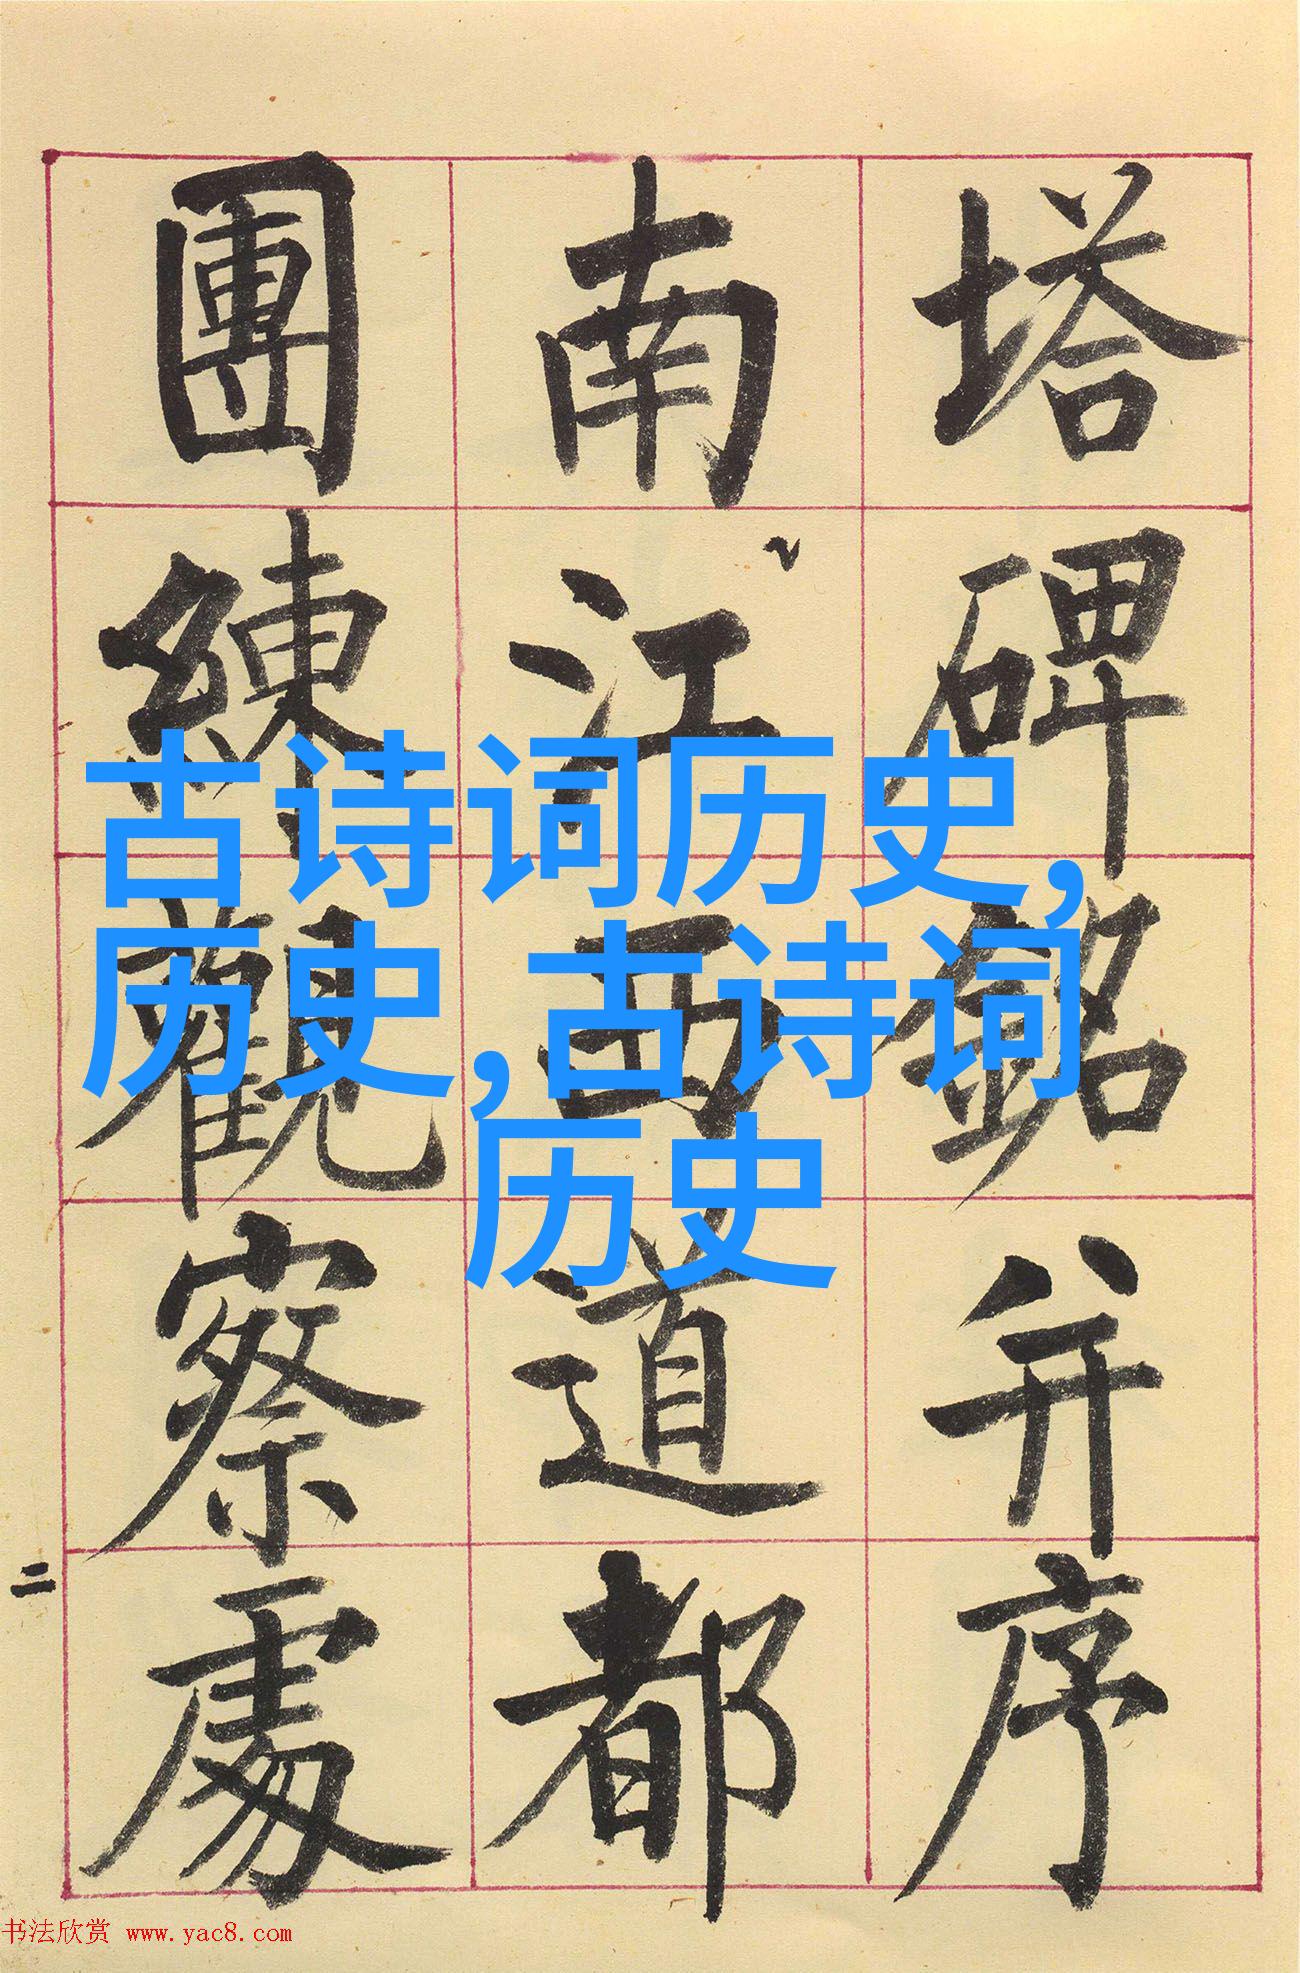 塔碑銘并序
南江西道都
團練觀察處
二
古诗词历史,
历史,古诗词
历史
书法欣赏 www.yac8.com